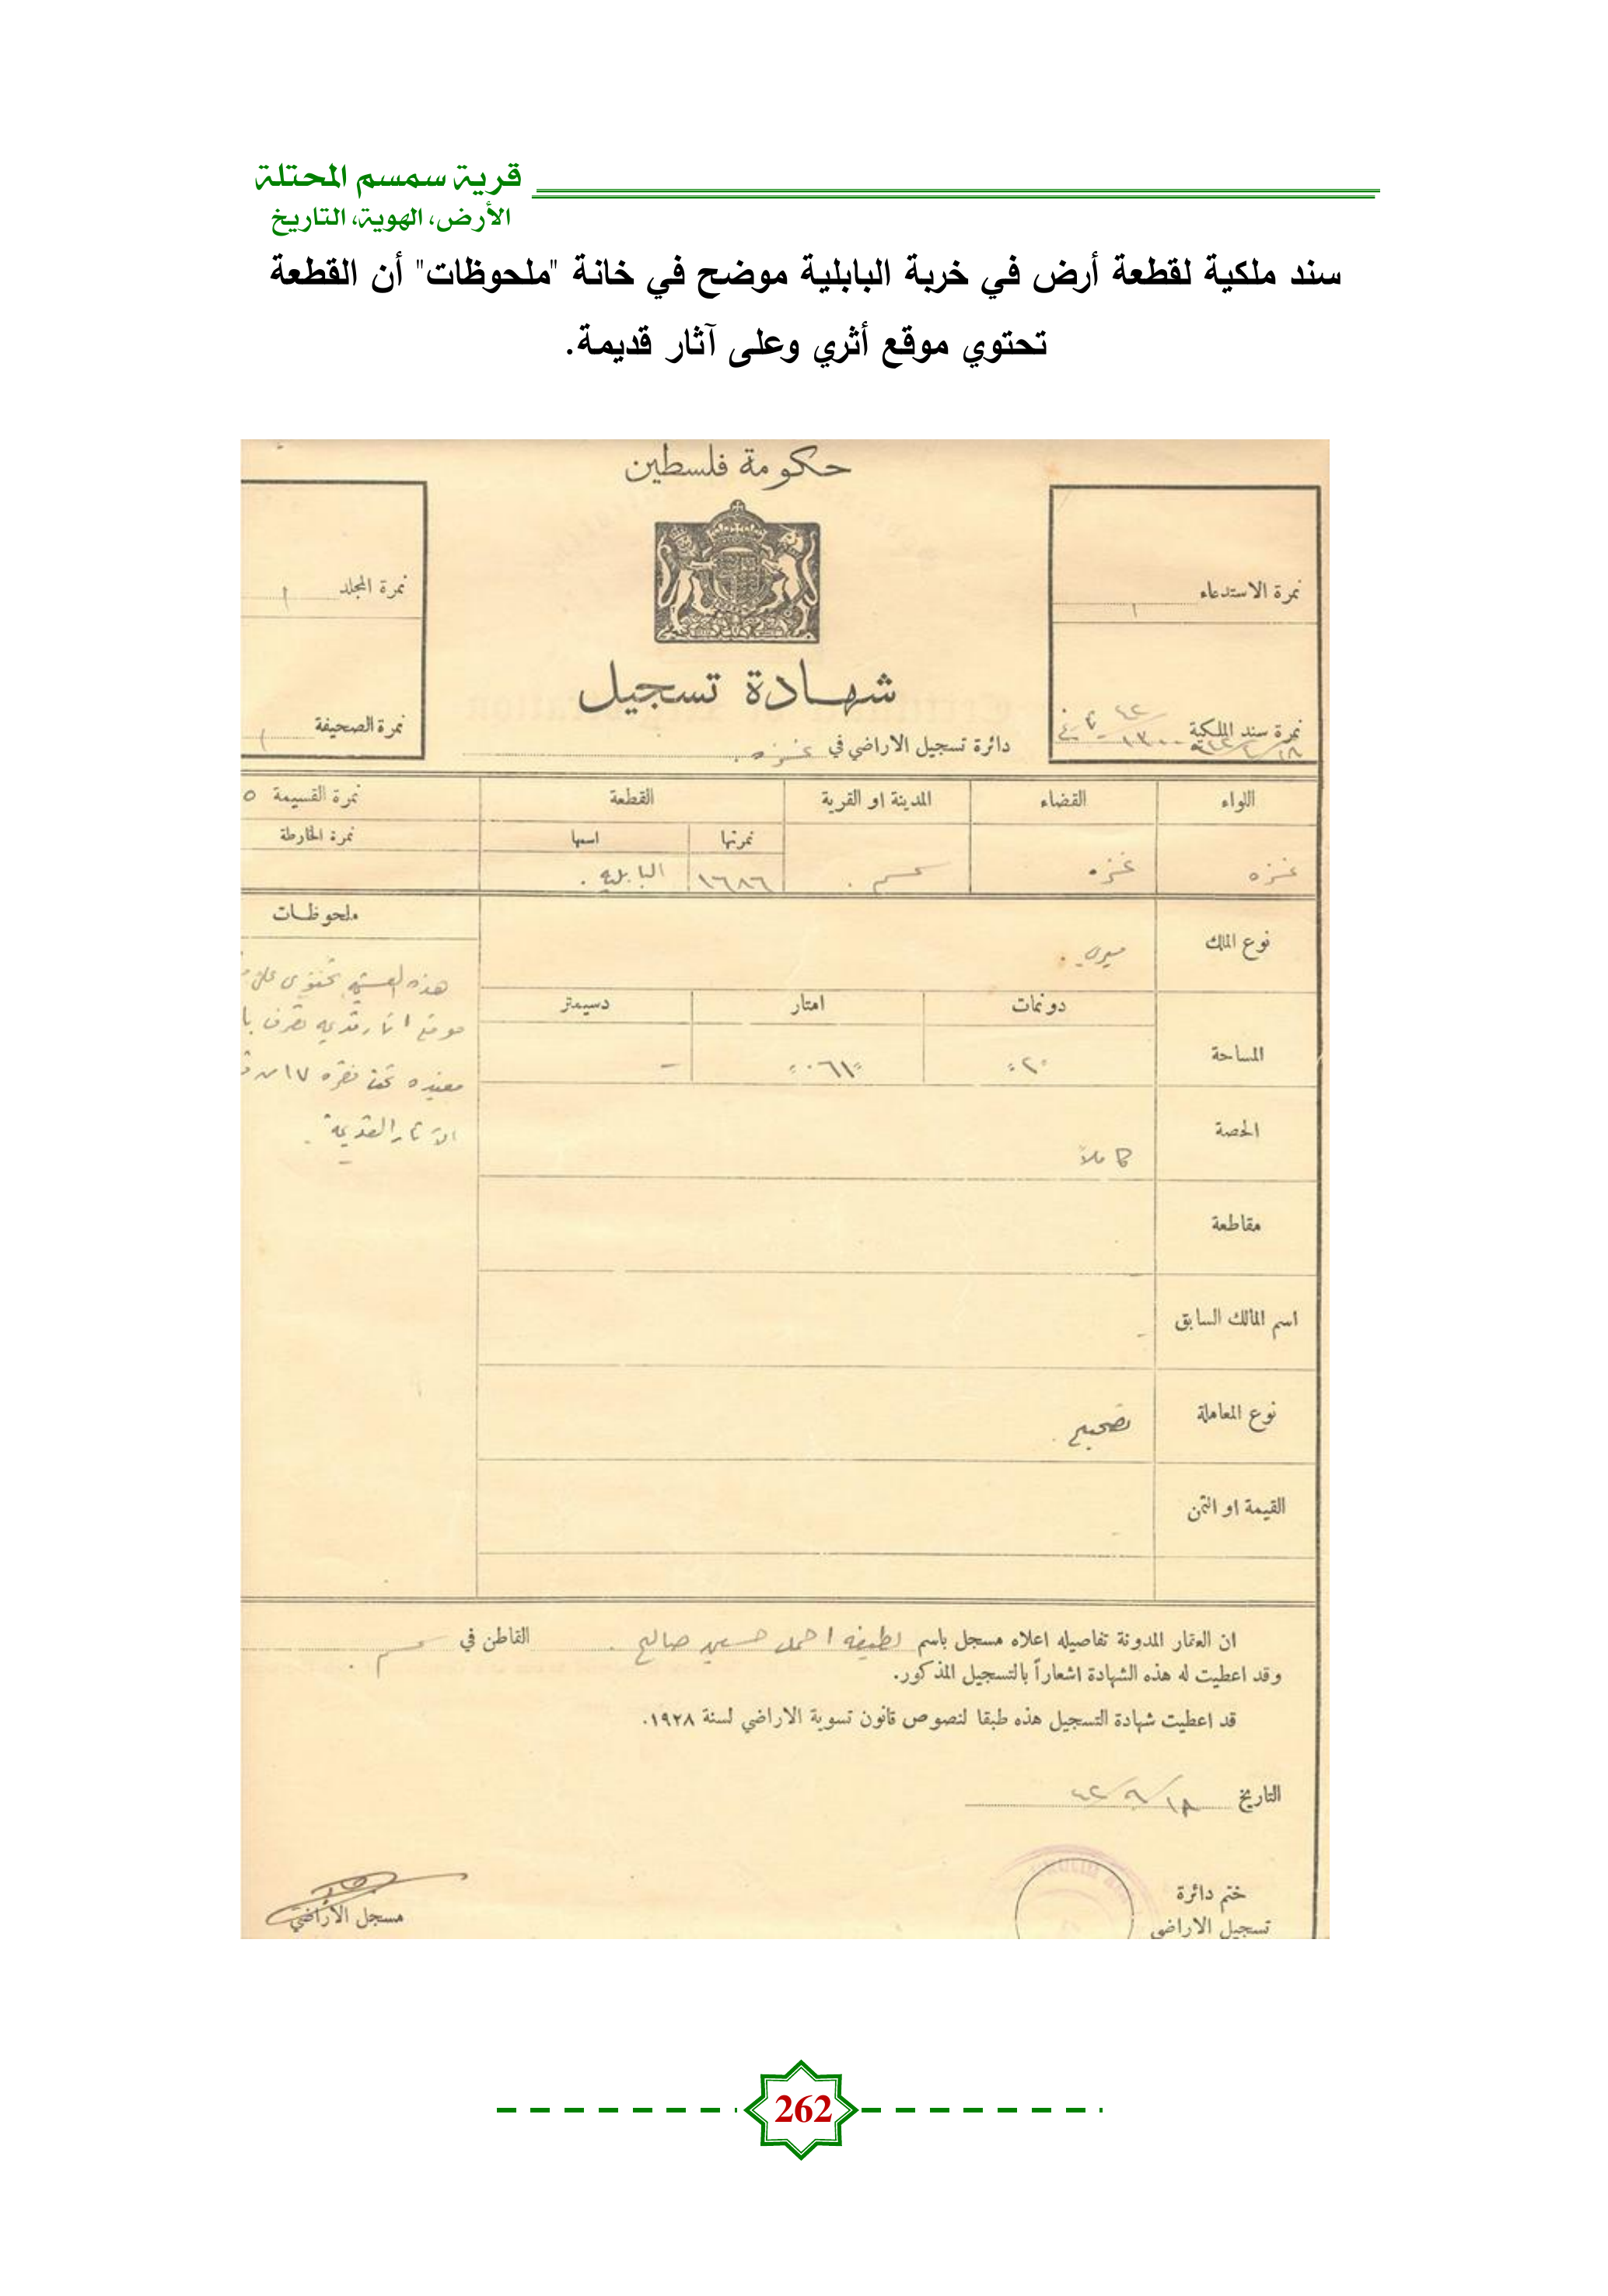 قرية سمسم المحتلة
الأرض، الهوية، التاريخ
سند ملكية لقطعة أرض في خربة البابلية موضح في خانة "ملحوظات" أن القطعة
تحتوي موقع أثري وعلى آثار قديمة.
حكومة فلسطين
نمرة الاستدعاء ١
نمرة المجلد ١
شهادة تسجيل
نمرة سند الملكية
نمرة الصحيفة ١
دائرة تسجيل الاراضي في غزه.
اللواء القضاء المدينة او القرية القطعة نمرة القسيمة ٥
نمرتها اسمها نمرة الخارطة
غزه غزه سمسم . ١٦٨٦ البابليه .
نوع الملك ميري .
ملحوظات
هذه القسيمه تحتوي على
موقع اثار قديمه تصرف با
مقيده تحت فقره ١٧ من
الآثار القديمة .
دونمات امتار دسيمتر
المساحة "٢" "٠٦١" –
الحصة كاملاً
مقاطعة
اسم المالك السابق -
نوع المعاملة تصحيح .
القيمة او الثمن -
ان العقار المدونة تفاصيله اعلاه مسجل باسم لطيفه احمد حسين صالح . القاطن في سمسم .
وقد اعطيت له هذه الشهادة اشعاراً بالتسجيل المذكور.
قد اعطيت شهادة التسجيل هذه طبقا لنصوص قانون تسوية الاراضي لسنة ١٩٢٨.
التاريخ
ختم دائرة
تسجيل الاراضي
مسجل الاراضي
262